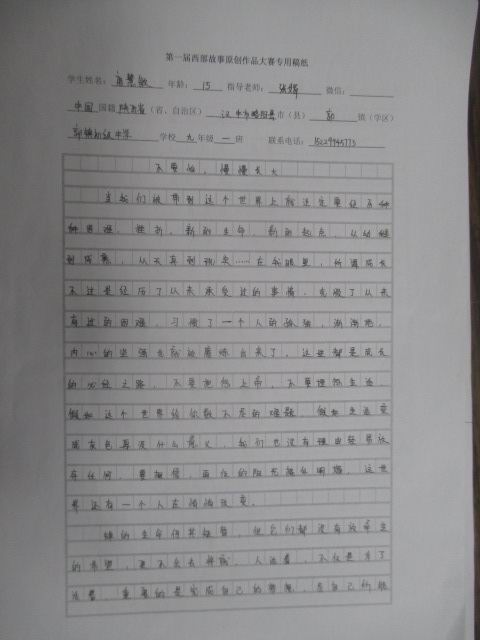 第一届西部故事原创作品大赛专用稿纸
学生姓名： 慧敏 年龄：15 指导老师：张辉 微信：
中国 国籍 陕西省（省、自治区）汉中市略阳县 市（县）郭 镇（学区）
郭镇初级中学 学校 九 年级 一 班 联系电话：
不要怕，慢慢长大
当我们被带到这个世界上就注定要经历种
种困难、挫折。新的生命，新的起点。从幼稚
到成熟，从天真到现实……在我眼里，所谓成长
不过是经历了从未承受过的事情，克服了从未
有过的困难，习惯了一个人的孤独，渐渐地，
内心的坚强也就被磨练出来了，这些都是成长
的必经之路，不要抱怨上帝，不要埋怨生活，
假如这个世界给你数不尽的难题，假如生活变
成灰色再没什么意义，我们也没有理由轻易放
弃任何，要相信，两后的阳光格外明媚，这世
界还有一个人在悄悄改变。
的生命何其短暂，但它们都没有放弃生
的希望，更不会去 ，人活着，不仅是为了
活着，重要的是完成自己的梦想，尽自己所能